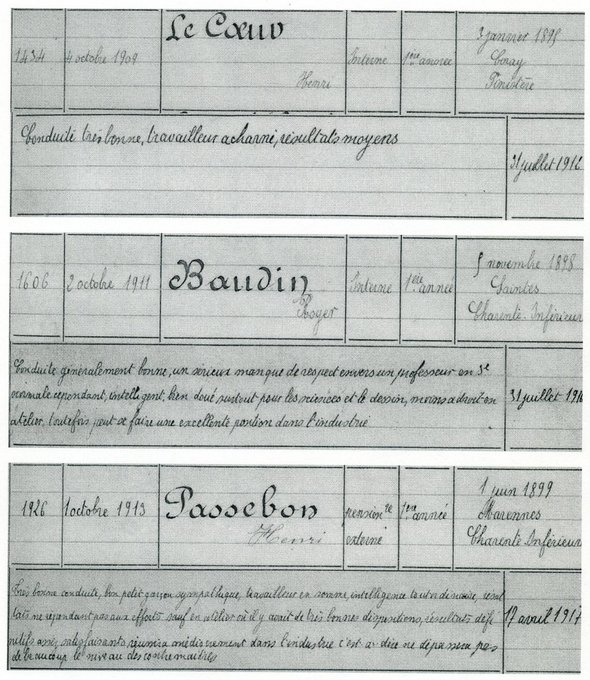 1434 4 octobre 1909 Le Cœuv Interne 1ère année 3 janvier 1895
Henri Coray
Finistère
Conduite très bonne, travailleur acharné, résultats moyens
31 juillet 1912
1606 2 octobre 1911 Baudin Interne 1ère année 5 novembre 1898
Roger Saintes
Charente Inférieur
Conduite généralement bonne, un sérieux manque de respect envers un professeur en 3e
normale cependant, intelligent, bien doué surtout pour les sciences et le dessin, moins adroit en
atelier, toutefois peut se faire une excellente position dans l'industrie
31 juillet 1916
1926 1 octobre 1913 Passebon 1ère année 1 juin 1899
Henri externe Marennes
Charente Inférieur
Très bonne conduite, bon petit garçon sympathique, travailleur en somme, intelligence résul
tats ne répondant pas aux efforts sauf en atelier où il y avait de très bonnes dispositions, résultats défi
nitifs assez satisfaisants, réussira médiocrement dans l'industrie c'est à dire ne dépassera pas
de beaucoup le niveau des contremaîtres
17 avril 1917